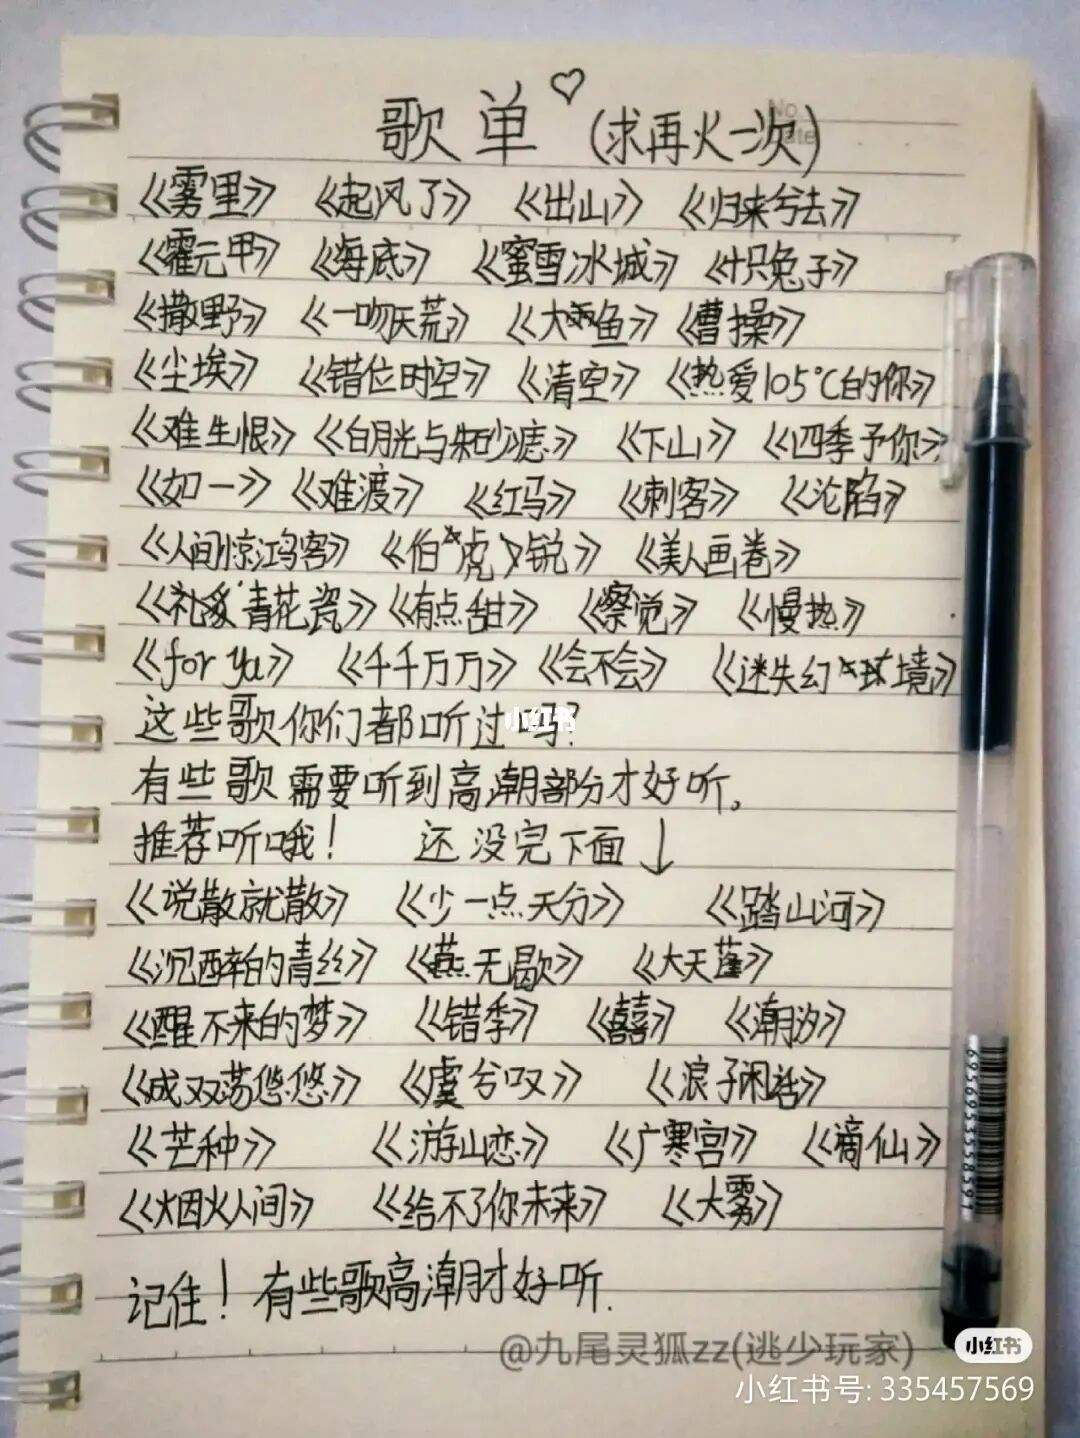 歌单♡(求再火一次)
《雾里》 《起风了》 《出山》 《归来兮去》
《霍元甲》 《海底》 《蜜雪冰城》 《十只兔子》
《撒野》 《一吻天荒》 《大鱼》 《曹操》
《尘埃》 《错位时空》 《清空》 《热爱105℃的你》
《难生恨》 《白月光与朱砂痣》 《下山》 《四季予你》
《如一》 《难渡》 《红马》 《刺客》 《沦陷》
《人间惊鸿客》 《伯虎说》 《美人画卷》
《青花瓷》 《有点甜》 《察觉》 《慢热》
《for ya》 《千千万万》 《会不会》 《迷失幻境》
这些歌你们都听过吗?
有些歌需要听到高潮部分才好听。
推荐听哦! 还没完下面↓
《说散就散》 《少一点天分》 《踏山河》
《沉醉的青丝》 《燕无歇》 《大天蓬》
《醒不来的梦》 《错季》 《囍》 《潮汐》
《成双荡悠悠》 《虞兮叹》 《浪子闲话》
《芒种》 《游山恋》 《广寒宫》 《谪仙》
《烟火人间》 《给不了你未来》 《大雾》
记住! 有些歌高潮才好听.
@九尾灵狐zz(逃少玩家)
小红书
小红书号: 335457569
小红书
No.
Date
6956953558591